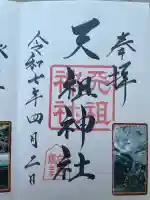 奉拝
天祖神社
天祖神社
令和七年四月二日